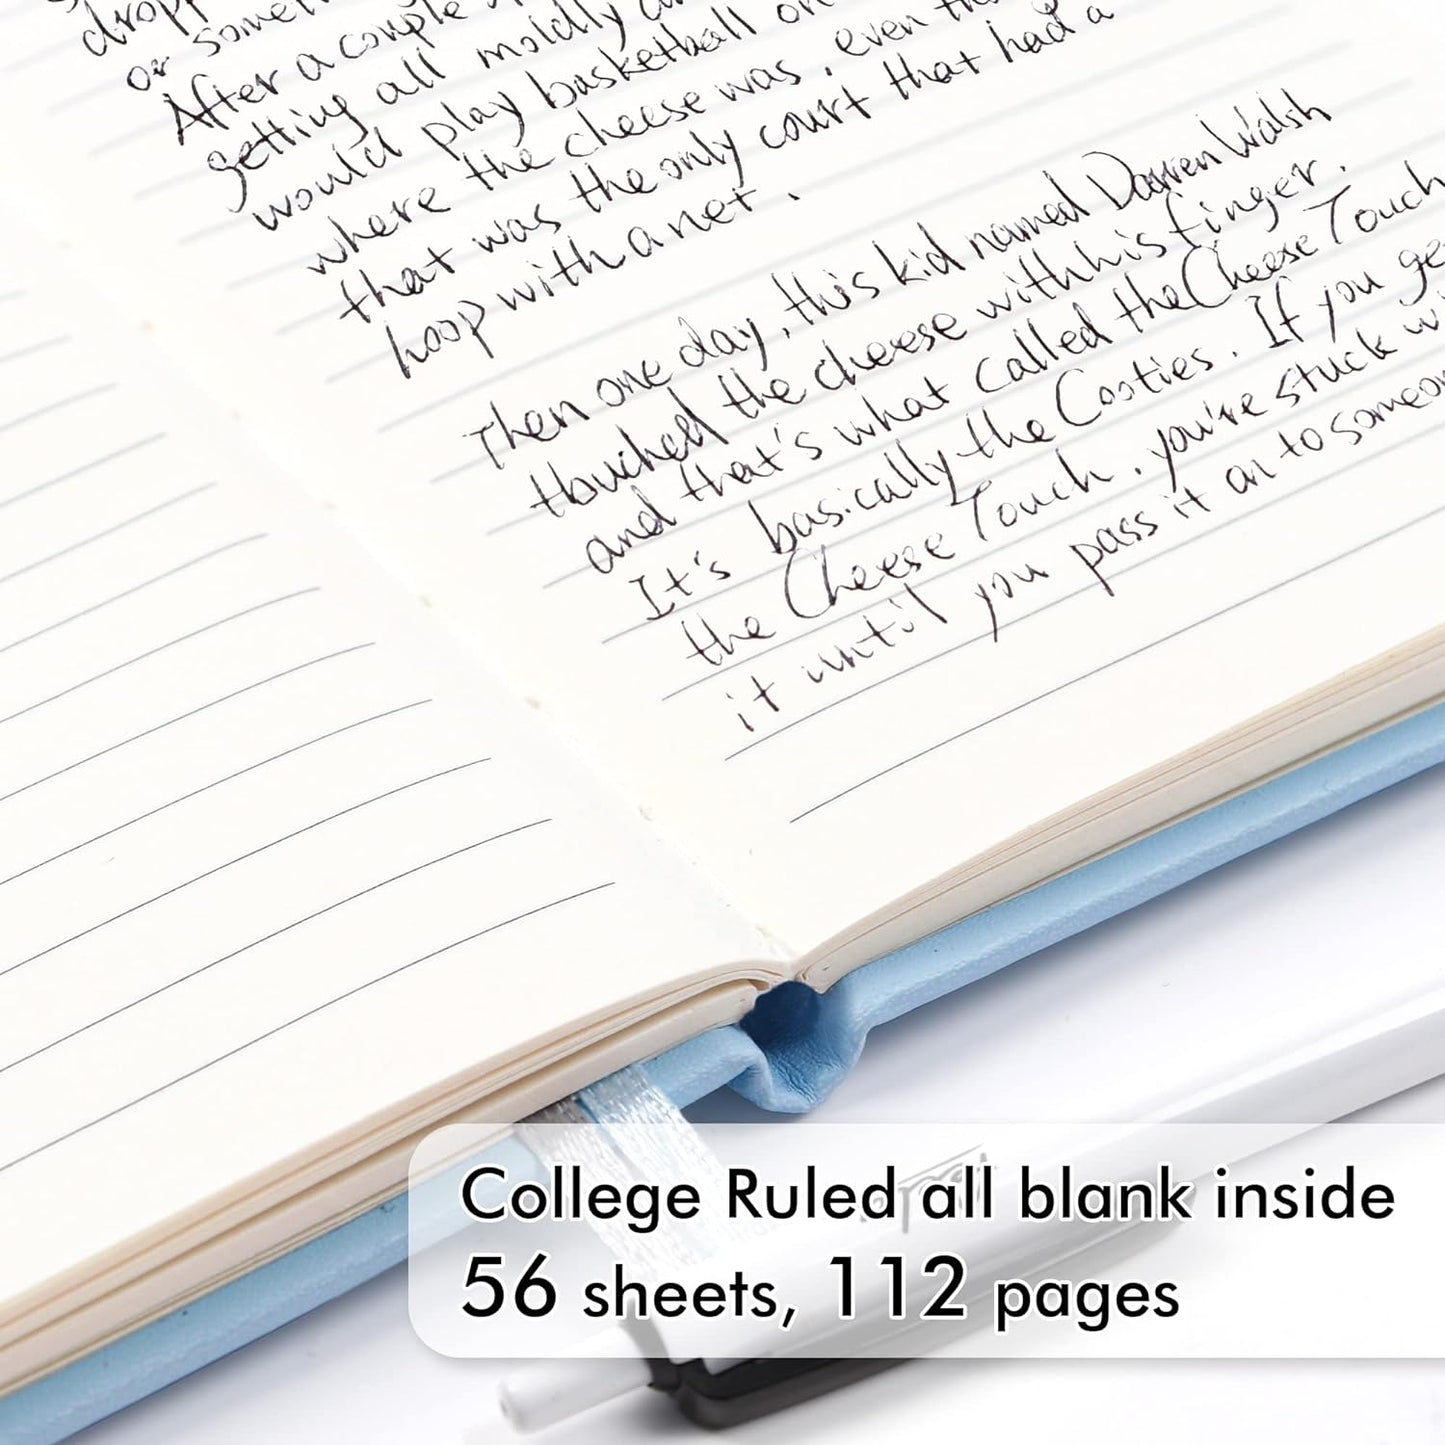 or
After a couple
getting all moldly
would play basketball on
where the cheese was, even
that was the only court that had a
hoop with a net.
Then one day, this kid named Darren Walsh
touched the cheese with his finger.
and that's what called the Cheese Touch
It's basically the Cooties. If you
the Cheese Touch, you're stuck
it until you pass it on to
College Ruled all blank inside
56 sheets, 112 pages